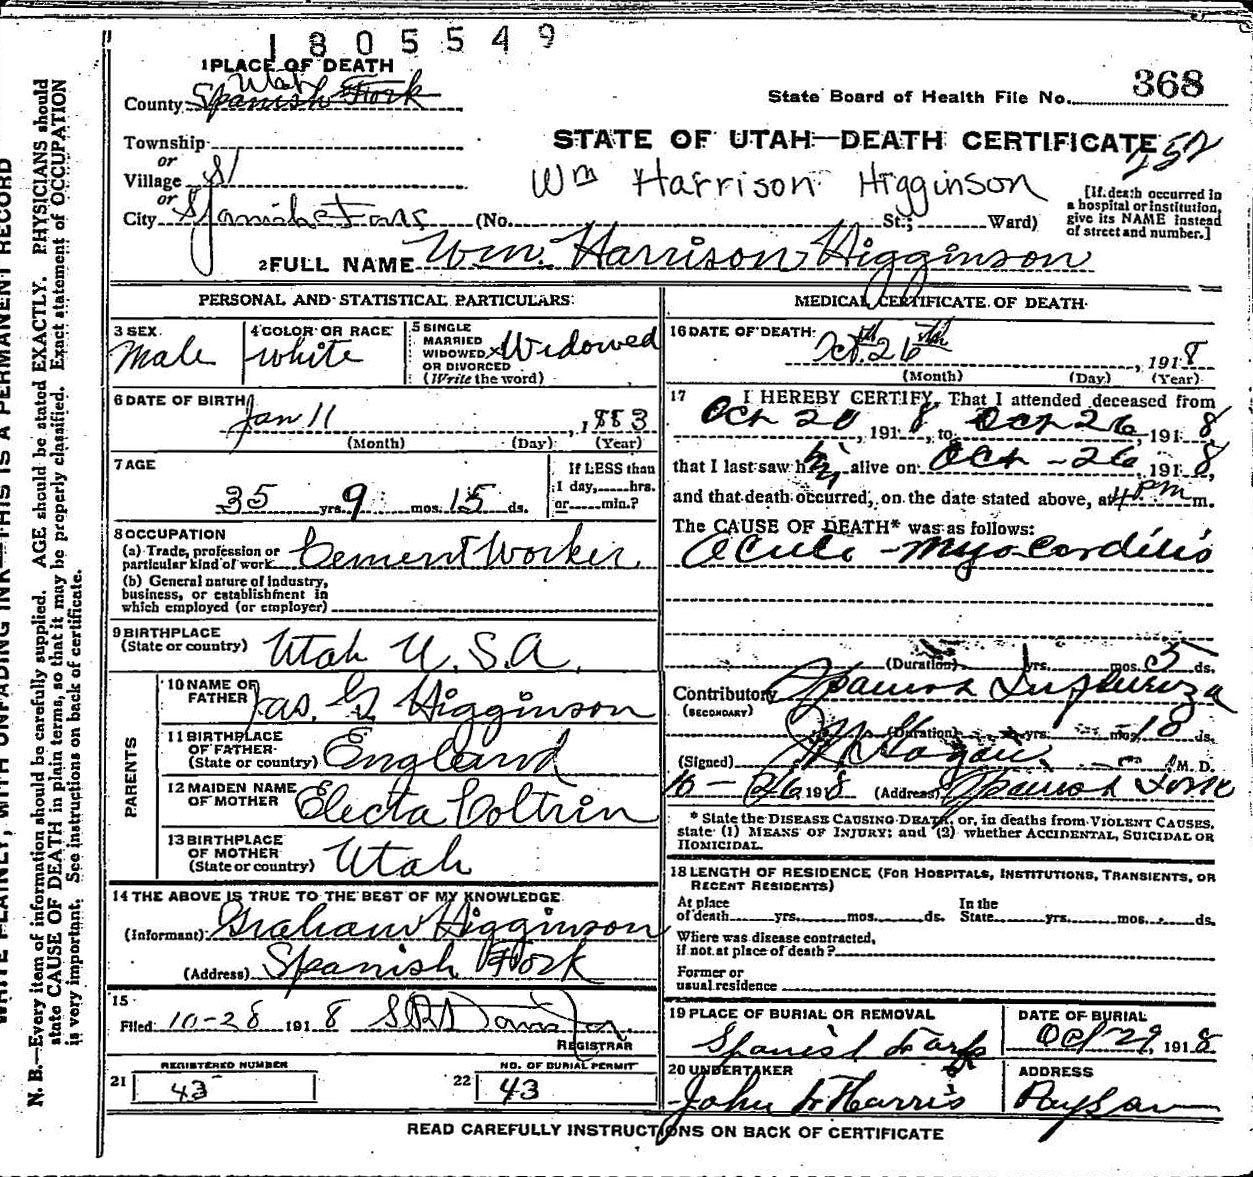 1805549
1 PLACE OF DEATH
Utah
County Spanish Fork
State Board of Health File No. 368
Township
or
Village
or
City Spanish Fork (No. St.; Ward)
STATE OF UTAH—DEATH CERTIFICATE
252
Wm Harrison Higginson
[If death occurred in
a hospital or institution,
give its NAME instead
of street and number.]
2 FULL NAME Wm. Harrison Higginson
PERSONAL AND STATISTICAL PARTICULARS
3 SEX
Male
4 COLOR OR RACE
White
5 SINGLE
MARRIED
WIDOWED, Widowed
OR DIVORCED
(Write the word)
6 DATE OF BIRTH
Jan 11, 1883
(Month) (Day) (Year)
7 AGE
35 yrs. 9 mos. 15 ds.
If LESS than
1 day, hrs.
or min.?
8 OCCUPATION
(a) Trade, profession or
particular kind of work Cement Worker
(b) General nature of industry,
business, or establishment in
which employed (or employer)
9 BIRTHPLACE
(State or country) Utah U.S.A.
PARENTS
10 NAME OF
FATHER Jas. G. Higginson
11 BIRTHPLACE
OF FATHER
(State or country) England
12 MAIDEN NAME
OF MOTHER Electa Coltrin
13 BIRTHPLACE
OF MOTHER
(State or country) Utah
14 THE ABOVE IS TRUE TO THE BEST OF MY KNOWLEDGE
(Informant) Graham Higginson
(Address) Spanish Fork
15
Filed 10-28 1918
REGISTRAR
REGISTERED NUMBER
21 43
NO. OF BURIAL PERMIT
22 43
MEDICAL CERTIFICATE OF DEATH
16 DATE OF DEATH
Oct. 26th, 1918
(Month) (Day) (Year)
17 I HEREBY CERTIFY, That I attended deceased from
Oct 20, 1918, to Oct 26, 1918,
that I last saw him alive on Oct-26, 1918,
and that death occurred, on the date stated above, at 4 pm m.
The CAUSE OF DEATH* was as follows:
Acute-Myocarditis
(Duration) yrs. mos. 5 ds.
Contributory Spanish Influenza
(SECONDARY)
(Duration) yrs. mos. ds.
(Signed) M.D.
10-26 1918 (Address) Spanish Fork
* State the DISEASE CAUSING DEATH, or, in deaths from VIOLENT CAUSES,
state (1) MEANS OF INJURY; and (2) whether ACCIDENTAL, SUICIDAL OR
HOMICIDAL.
18 LENGTH OF RESIDENCE (FOR HOSPITALS, INSTITUTIONS, TRANSIENTS, OR
RECENT RESIDENTS)
At place
of death yrs. mos. ds.
In the
State yrs. mos. ds.
Where was disease contracted,
if not at place of death?
Former or
usual residence
19 PLACE OF BURIAL OR REMOVAL
Spanish Fork
DATE OF BURIAL
Oct 29, 1918
20 UNDERTAKER
John Harris
ADDRESS
Payson
READ CAREFULLY INSTRUCTIONS ON BACK OF CERTIFICATE
WRITE PLAINLY, WITH UNFADING INK—THIS IS A PERMANENT RECORD
N. B.—Every item of information should be carefully supplied. AGE should be stated EXACTLY. PHYSICIANS should
state CAUSE OF DEATH in plain terms, so that it may be properly classified. Exact statement of OCCUPATION
is very important. See instructions on back of certificate.